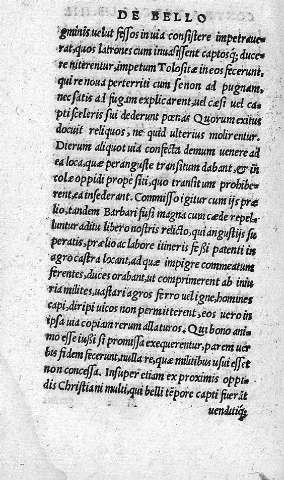 DE BELLO
gminis, uelut fessos in uia consistere impetrauerat, quos latrones cum inuasissent captosq; duce
re niterentur, impetum Tolositæ in eos fecerunt,
qui re noua perterriti cum se non ad pugnam,
nec satis ad fugam explicarent, uel cæsi uel ca
pti sceleris sui dederunt pœnas Quorum exitus
docuit reliquos, ne quid ulterius molirentur.
Dierum aliquot uia confecta demum uenere ad
ea loca, quæ perangustè transitum dabant, et in
colæ oppidi propè siti, quo transitum prohibe
rent, ea insederant. Commisso igitur cum ijs præ
lio, tandem Barbari fusi magna cum cæde repel
luntur aditu libero nostris relicto, qui angustijs su
peratis, prælio ac labore itineris fessi patenti in
agro castra locant, ad quæ impigre commeatum
ferentes, duces orabant, ut comprimerent ab iniu
ria milites, uastari agros ferro uel igne, homines
capi, diripi uicos non permitterent, eos uero in
ipsa uia copiam rerum allaturos. Qui bono ani
mo esse iussi si promissa exequerentur, parem uer
bis fidem fecerunt, nulla re, quæ militibus usui esset
non concessa. Insuper etiam ex proximis oppi
dis Christiani multi, qui belli tẽpore capti fuerãt
uenditiq;